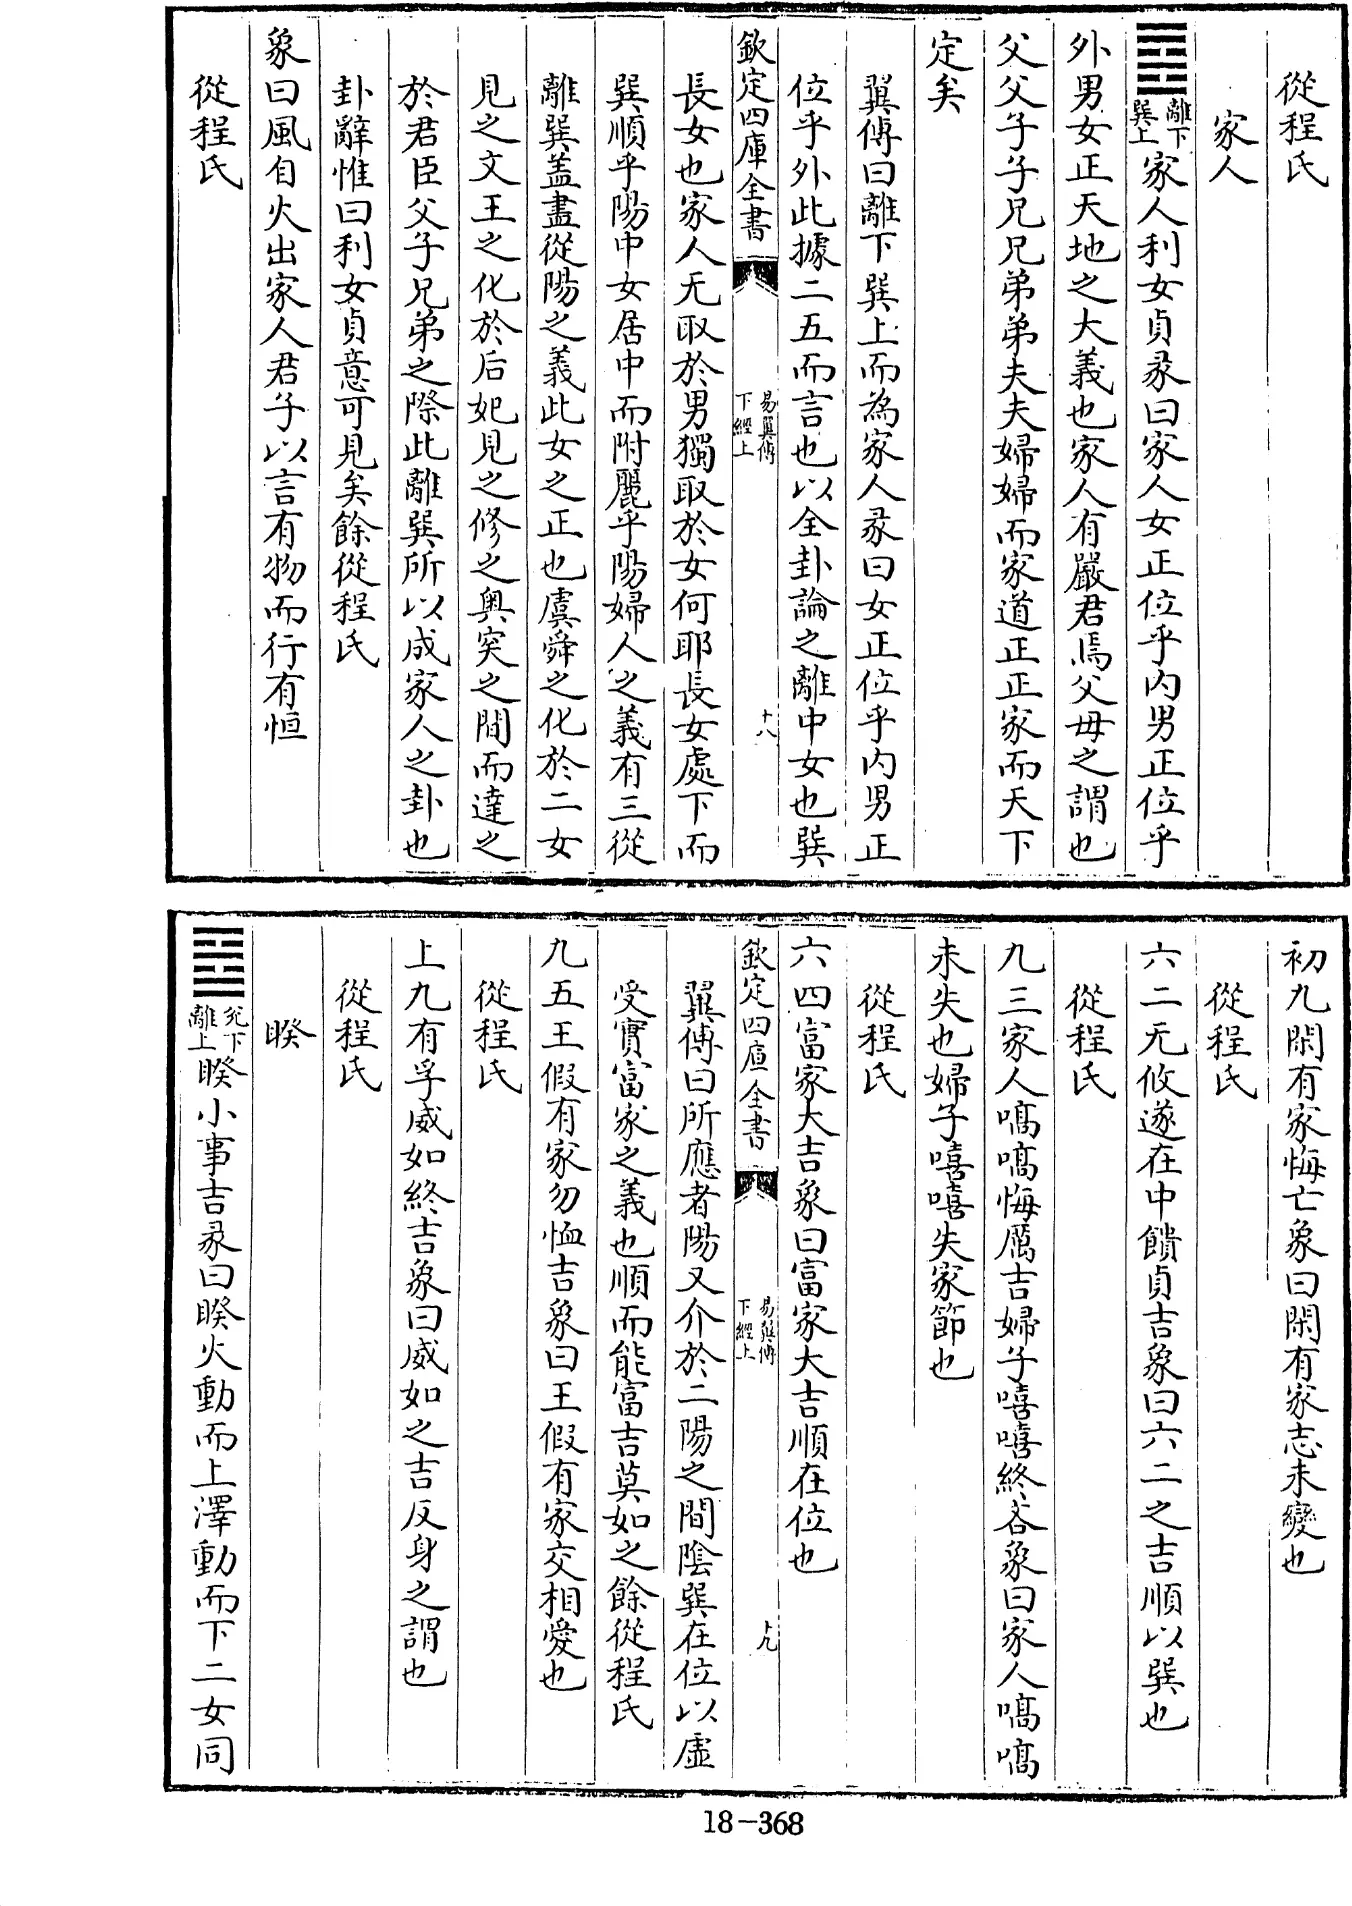 從程氏
家人
離下
巽上
家人利女貞彖曰家人女正位乎内男正位乎
外男女正天地之大義也家人有嚴君焉父母之謂也
父父子子兄兄弟弟夫夫婦婦而家道正正家而天下
定矣
翼傳曰離下巽上而為家人彖曰女正位乎内男正
位乎外此據二五而言也以全卦論之離中女也巽
欽定四庫全書
易翼傳
下經上
十八
長女也家人无取於男獨取於女何耶長女處下而
巽順乎陽中女居中而附麗乎陽婦人之義有三從
離巽盖盡從陽之義此女之正也虞舜之化於二女
見之文王之化於后妃見之修之奥突之間而達之
於君臣父子兄弟之際此離巽所以成家人之卦也
卦辭惟曰利女貞意可見矣餘從程氏
象曰風自火出家人君子以言有物而行有恒
從程氏
初九閑有家悔亡象曰閑有家志未變也
從程氏
六二无攸遂在中饋貞吉象曰六二之吉順以巽也
從程氏
九三家人嗃嗃悔厲吉婦子嘻嘻終吝象曰家人嗃嗃
未失也婦子嘻嘻失家節也
從程氏
六四富家大吉象曰富家大吉順在位也
欽定四庫全書
易翼傳
下經上
十九
翼傳曰所應者陽又介於二陽之間陰巽在位以虛
受實富家之義也順而能富吉莫如之餘從程氏
九五王假有家勿恤吉象曰王假有家交相愛也
從程氏
上九有孚威如終吉象曰威如之吉反身之謂也
從程氏
睽
兊下
離上
睽小事吉彖曰睽火動而上澤動而下二女同
18-368